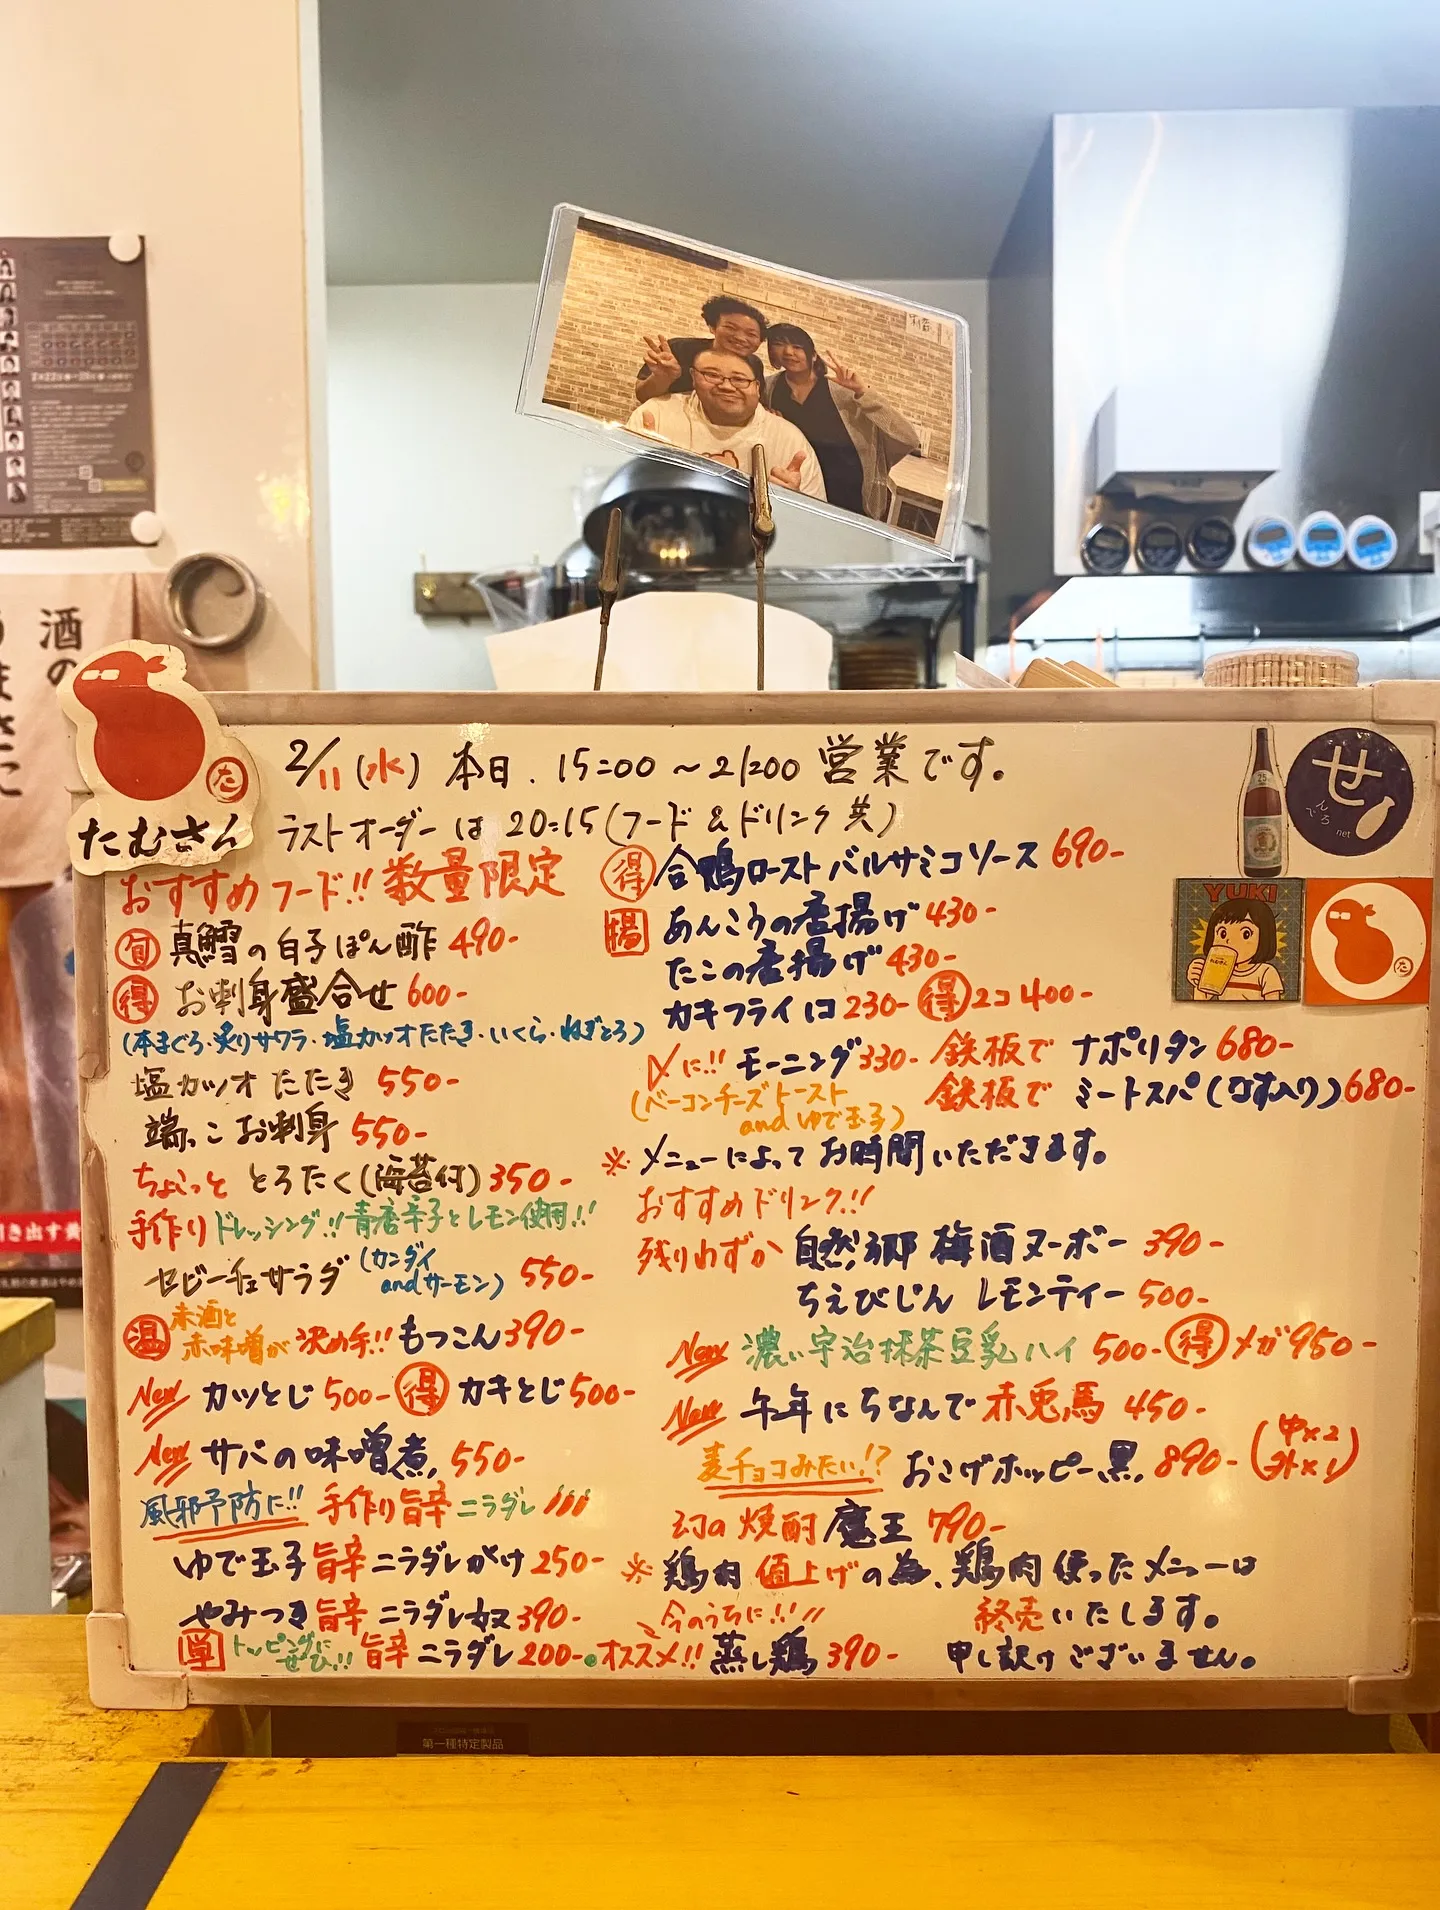 酒の
たむさん
た
2/11(水) 本日、15:00～21:00 営業です。
ラストオーダーは 20:15(フード&ドリンク共)
おすすめフード!! 数量限定
旬 真鱈の白子ぽん酢 490-
得 お刺身盛合せ 600-
(本まぐろ・炙りサワラ・塩カツオたたき・いくら・ねぎとろ)
塩カツオたたき 550-
端っこお刺身 550-
ちょこっと とろたく(海苔付) 350-
手作りドレッシング!! 青唐辛子とレモン使用!!
セビーチェサラダ (カンダイ andサーモン) 550-
温 赤酒と赤味噌が決め手!! もつこん 390-
New カツとじ 500- 得 カキとじ 500-
New サバの味噌煮 550-
風邪予防に!! 手作り旨辛ニラダレ!!!
ゆで玉子旨辛ニラダレがけ 250-
やみつき旨辛ニラダレ奴 390-
単 トッピングにぜひ!! 旨辛ニラダレ 200-
得 合鴨ロースト バルサミコソース 690-
揚 あんこうの唐揚げ 430-
たこの唐揚げ 430-
カキフライ 1コ 230- 得 2コ 400-
〆に!! モーニング 330-
(ベーコンチーズトースト
and ゆで玉子)
鉄板で ナポリタン 680-
鉄板で ミートスパ(なす入り) 680-
※メニューによってお時間いただきます。
おすすめドリンク!!
残りわずか 自然郷 梅酒ヌーボー 390-
ちえびじん レモンティー 500-
New 濃い宇治抹茶豆乳ハイ 500- 得 メガ 950-
New 午年にちなんで赤兎馬 450-
麦チョコみたい!? おこげホッピー黒 890- (中×2 外×1)
幻の焼酎 魔王 790-
※鶏肉値上げの為、鶏肉使ったメニューは
終売いたします。
申し訳ございません。
今のうちに!!
・オススメ!! 蒸し鶏 390-
せ
んでろ
net
YUKI
た
第一種特定製品